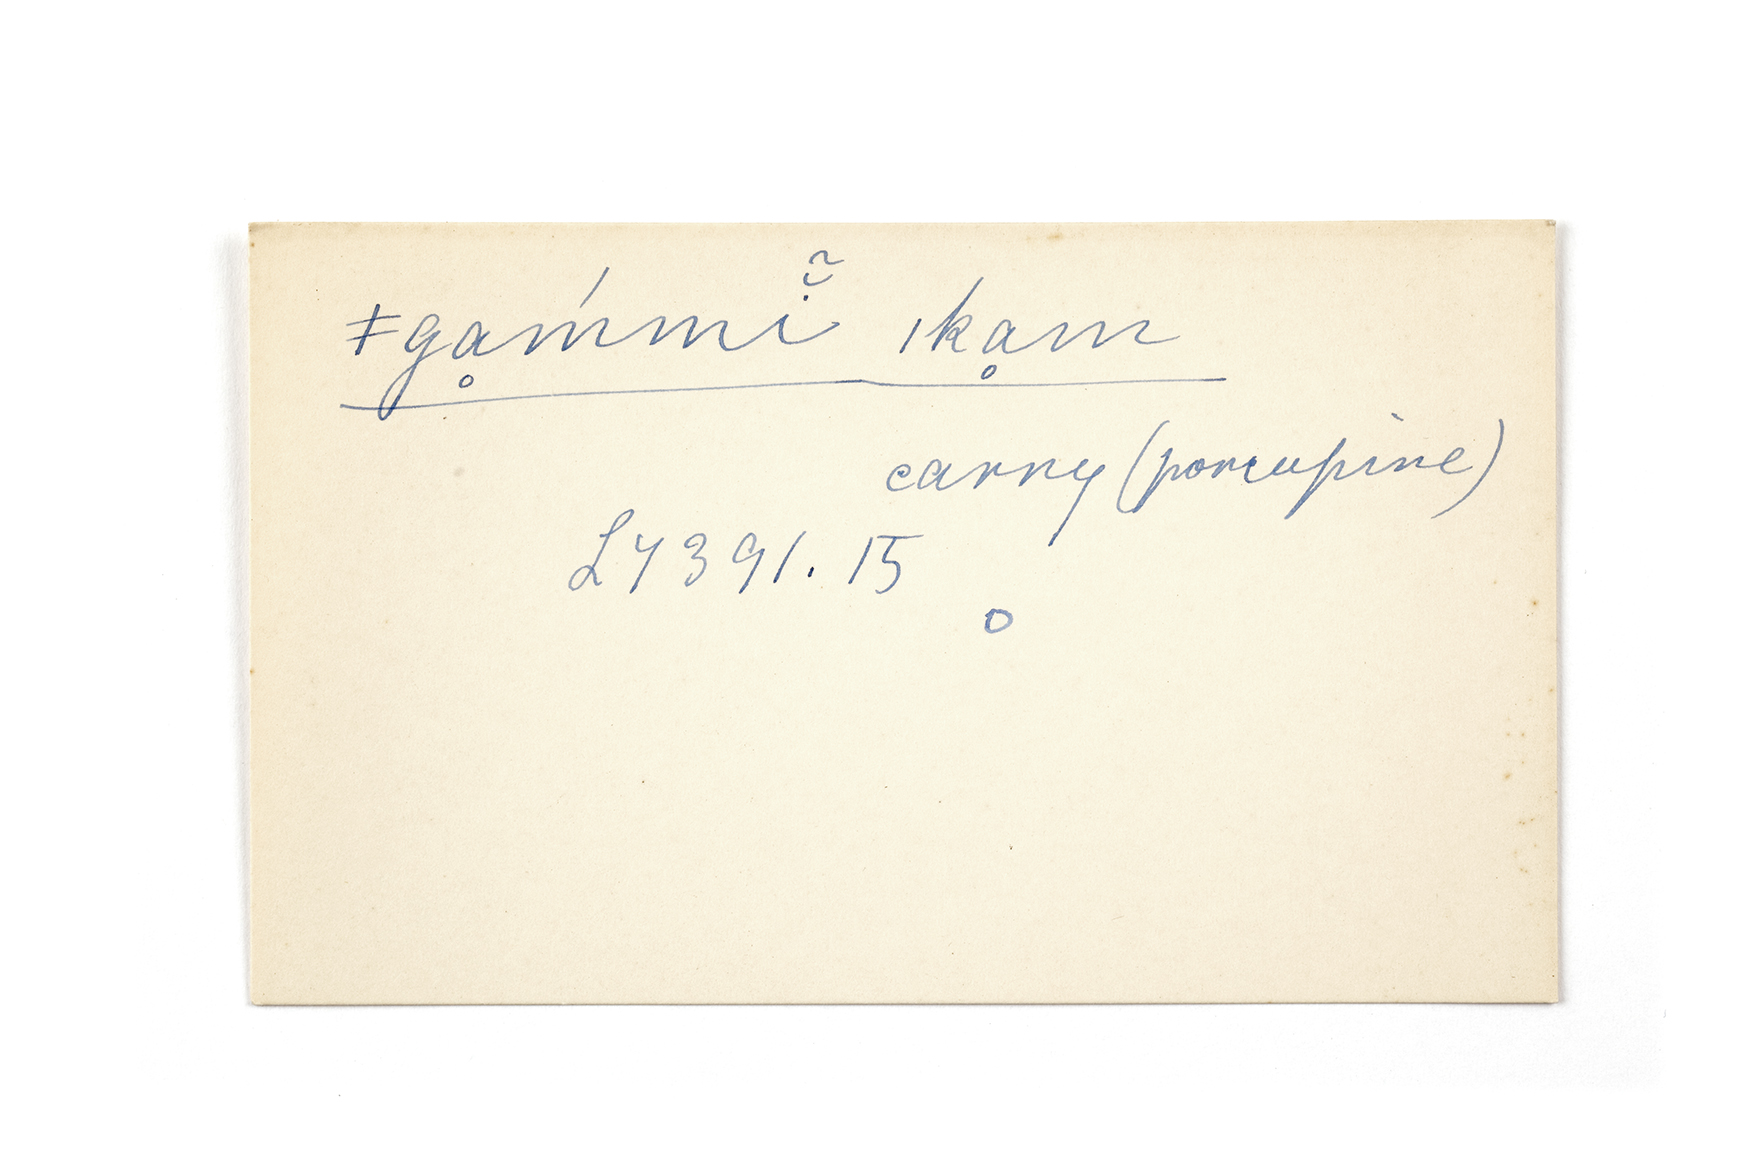 ǂgḁḿmĭ̃ ıkḁm
carry (porcupine)
L7391.15
o